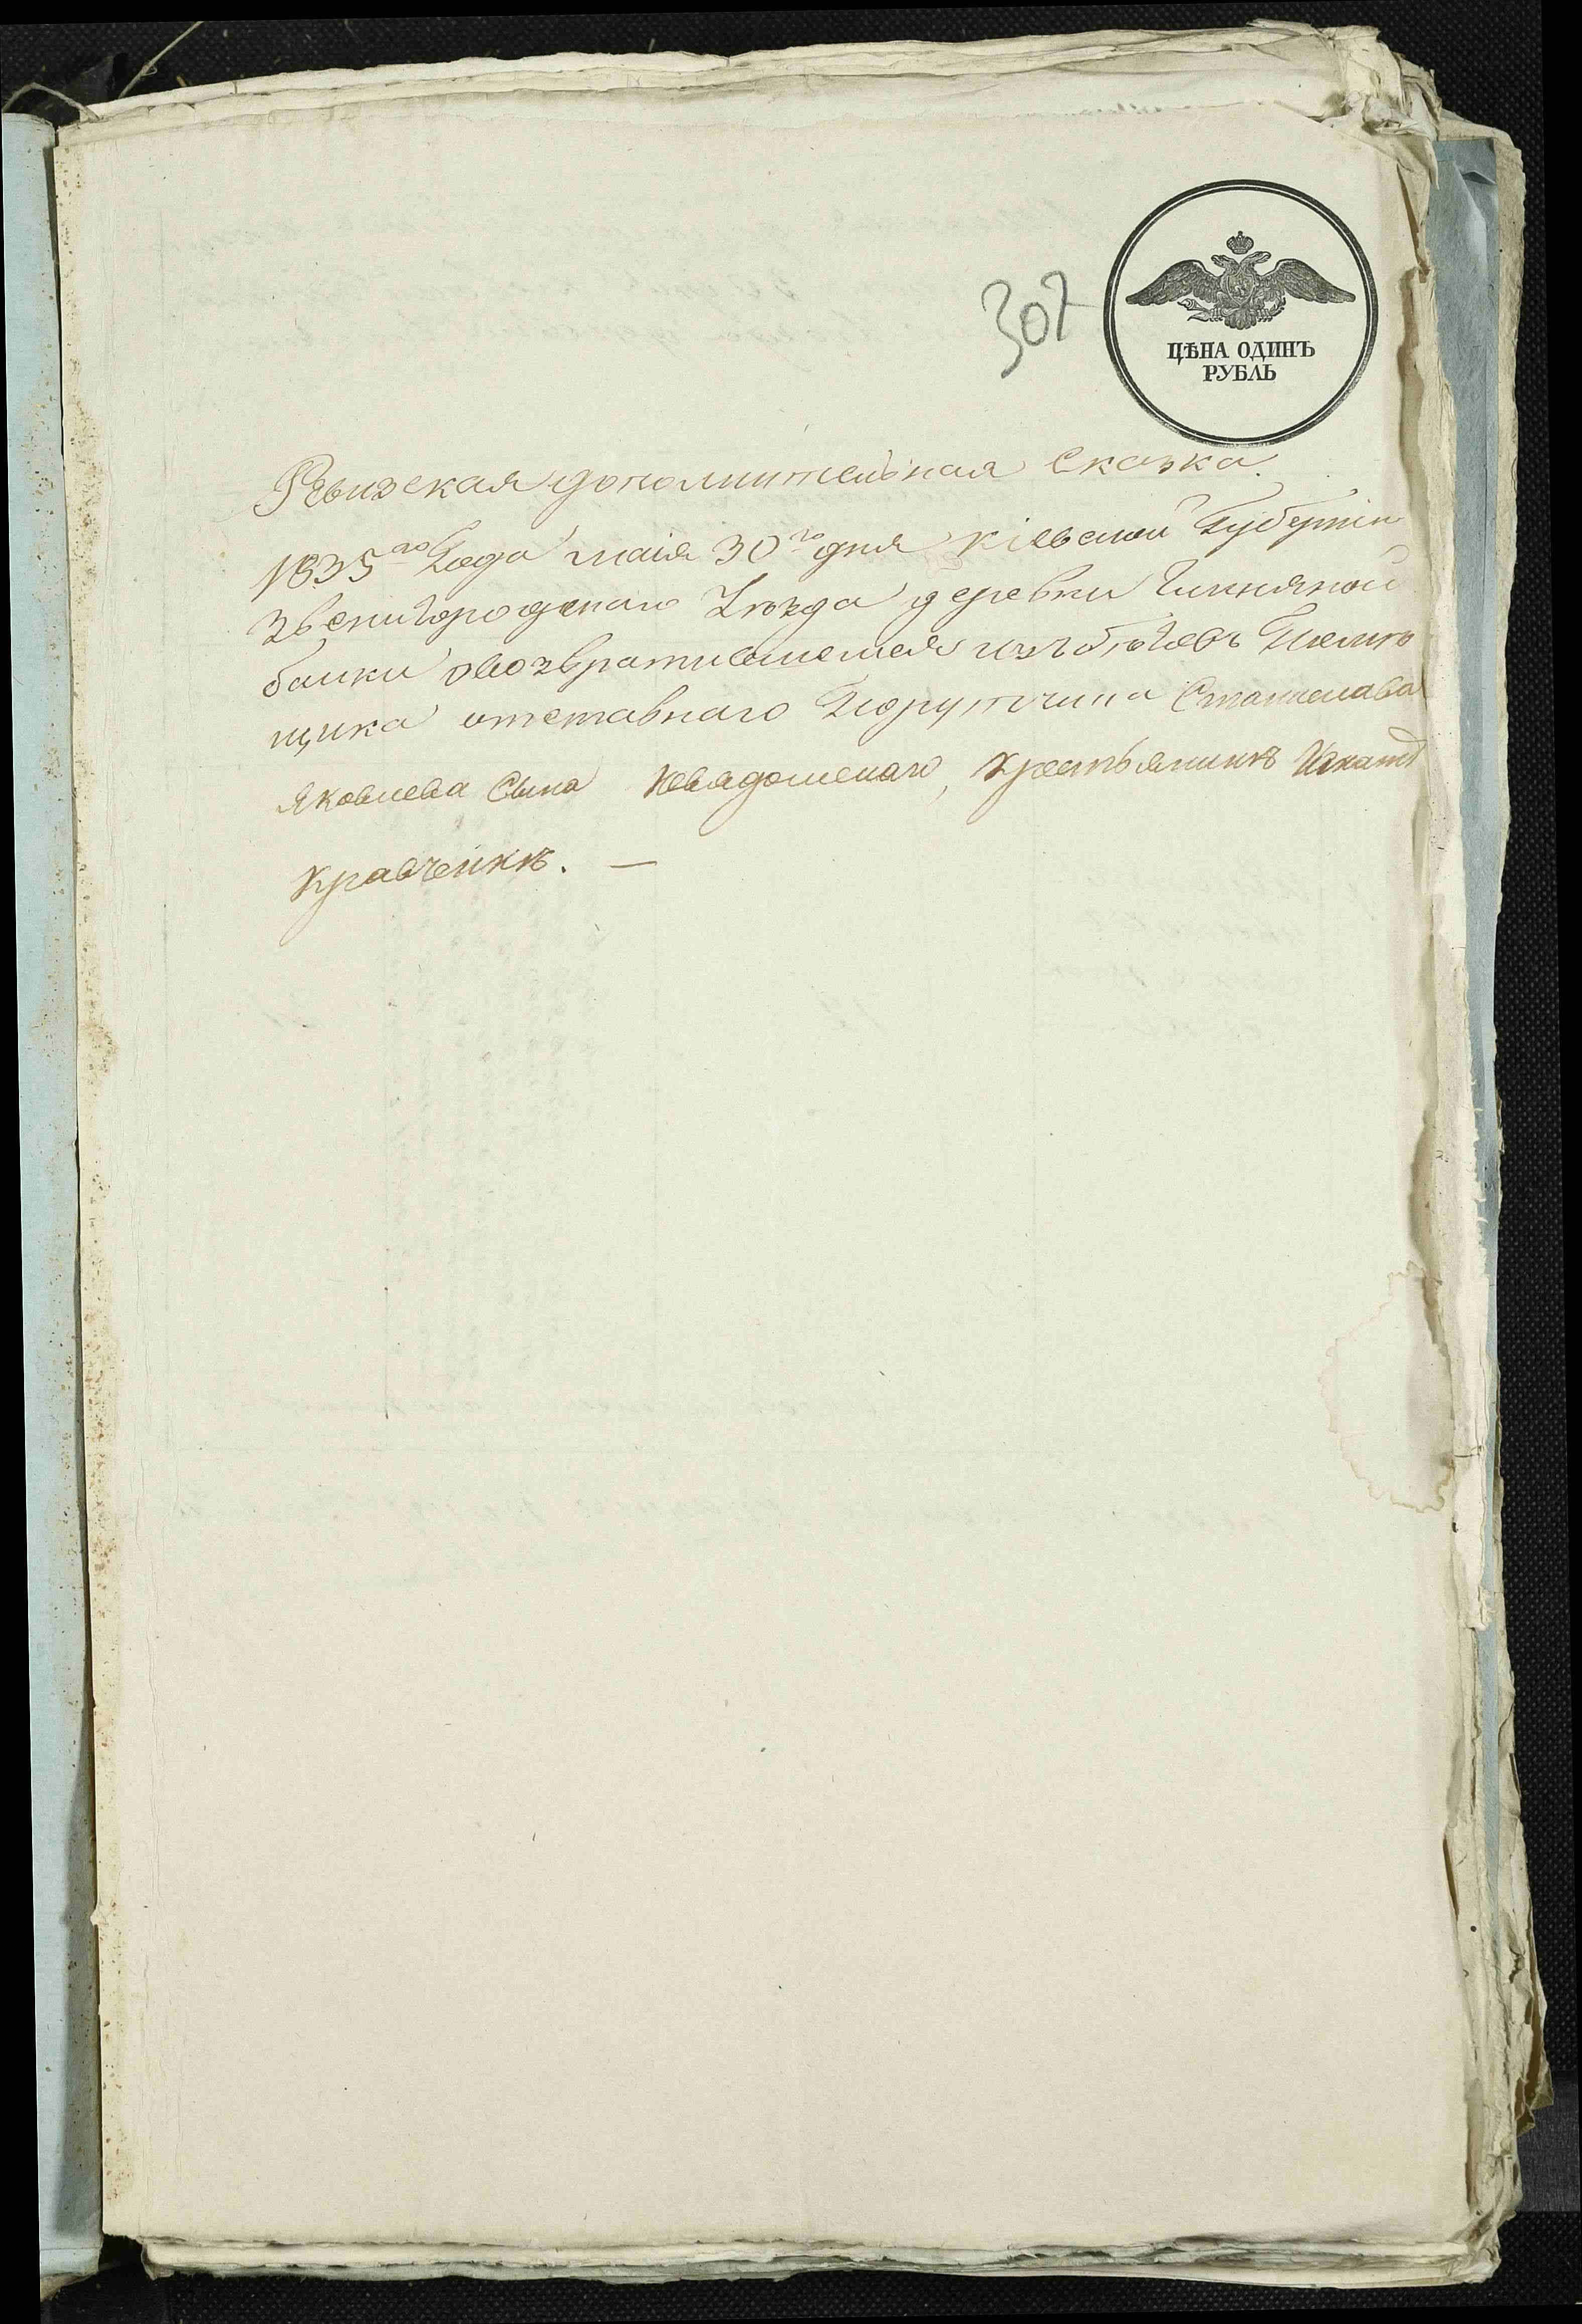 307
ЦѢНА ОДИНЪ
РУБЛЬ
Ревизская дополнительная Сказка.
1835го Года маія 30го дня Кіевской Губерніи
Звенигородскаго Уезда деревни Глиняной
балки овозвратившемся изъ бѣговъ Помѣ
щика отставнаго Порутчика Станислава
Яковлева Сына Квядомскаго, Крестьянинѣ Игнатѣ
Кравченкѣ. —